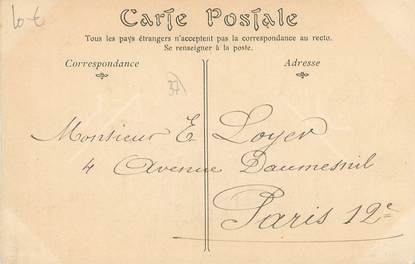 10 €
Carte Postale
Tous les pays étrangers n'acceptent pas la correspondance au recto.
Se renseigner à la poste.
Correspondance
Adresse
37
Monsieur E. Loyer
4 Avenue Daumesnil
Paris 12e